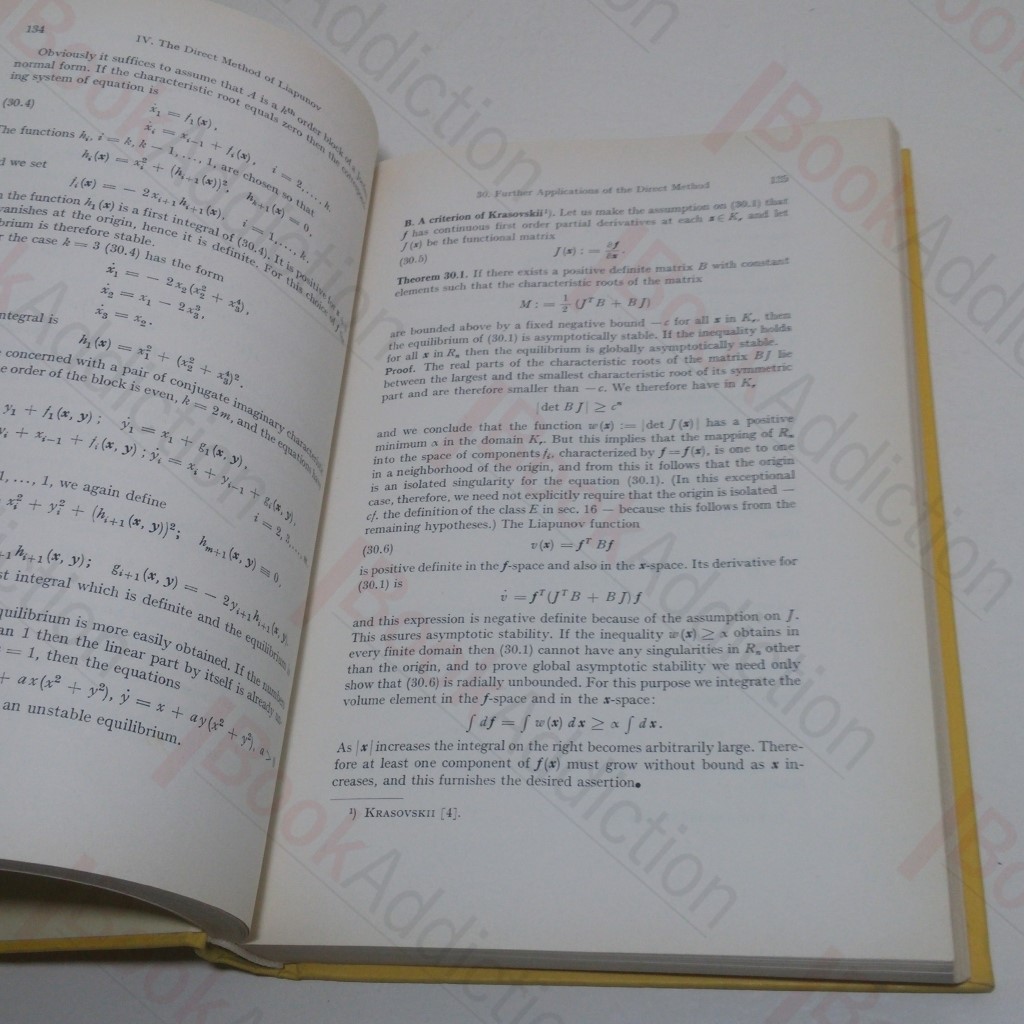 134
IV. The Direct Method of Liapunov
Obviously it suffices to assume that A is a kth order block of a
normal form. If the characteristic root equals zero then the
ing system of equation is
(30.4)
ẋ₁ = f₁(x),
ẋᵢ = xᵢ₋₁ + fᵢ(x), i = 2, ..., k.
The functions hᵢ, i = k, k − 1, ..., 1, are chosen so that
hᵢ(x) = xᵢ² + (hᵢ₊₁(x))²; hₖ₊₁(x) = 0,
d we set
fᵢ(x) = − 2xᵢ₊₁hᵢ₊₁(x), i = 1, ..., k.
the function h₁(x) is a first integral of (30.4). It is positive
vanishes at the origin, hence it is definite. For this choice of
brium is therefore stable.
the case k = 3 (30.4) has the form
ẋ₁ = − 2x₂(x₂² + x₃⁴),
ẋ₂ = x₁ − 2x₃³,
ẋ₃ = x₂.
ntegral is
h₁(x) = x₁² + (x₂² + x₃⁴)².
concerned with a pair of conjugate imaginary
e order of the block is even, k = 2m, and the equations
y₁ + f₁(x, y); ẏ₁ = x₁ + g₁(x, y),
yᵢ + xᵢ₋₁ + fᵢ(x, y); ẏᵢ = xᵢ + yᵢ₋₁ + gᵢ(x, y),
i = 2, 3, ...,
1, ..., 1, we again define
xᵢ² + yᵢ² + (hᵢ₊₁(x, y))²; hₘ₊₁(x, y) ≡ 0,
hᵢ₊₁(x, y); gᵢ₊₁(x, y) = − 2yᵢ₊₁hᵢ₊₁(x, y),
st integral which is definite and the
quilibrium is more easily obtained. If the
an 1 then the linear part by itself is already
= 1, then the equations
+ ax(x² + y²), ẏ = x + ay(x² + y²),
an unstable equilibrium.
30. Further Applications of the Direct Method
135
B. A criterion of Krasovskii¹). Let us make the assumption on (30.1) that
f has continuous first order partial derivatives at each x ∈ Kᵣ, and let
J(x) be the functional matrix
(30.5)
J(x) := ∂f/∂x.
Theorem 30.1. If there exists a positive definite matrix B with constant
elements such that the characteristic roots of the matrix
M := ½ (JᵀB + BJ)
are bounded above by a fixed negative bound −c for all x in Kᵣ, then
the equilibrium of (30.1) is asymptotically stable. If the inequality holds
for all x in Rₙ then the equilibrium is globally asymptotically stable.
Proof. The real parts of the characteristic roots of the matrix BJ lie
between the largest and the smallest characteristic root of its symmetric
part and are therefore smaller than −c. We therefore have in Kᵣ
|det BJ| ≥ cⁿ
and we conclude that the function w(x) := |det J(x)| has a positive
minimum α in the domain Kᵣ. But this implies that the mapping of Rₙ
into the space of components fᵢ, characterized by f = f(x), is one to one
in a neighborhood of the origin, and from this it follows that the origin
is an isolated singularity for the equation (30.1). (In this exceptional
case, therefore, we need not explicitly require that the origin is isolated —
cf. the definition of the class E in sec. 16 — because this follows from the
remaining hypotheses.) The Liapunov function
(30.6)
v(x) = fᵀ Bf
is positive definite in the f-space and also in the x-space. Its derivative for
(30.1) is
v̇ = fᵀ(JᵀB + BJ)f
and this expression is negative definite because of the assumption on J.
This assures asymptotic stability. If the inequality w(x) ≥ α obtains in
every finite domain then (30.1) cannot have any singularities in Rₙ other
than the origin, and to prove global asymptotic stability we need only
show that (30.6) is radially unbounded. For this purpose we integrate the
volume element in the f-space and in the x-space:
∫ df = ∫ w(x) dx ≥ α ∫ dx.
As |x| increases the integral on the right becomes arbitrarily large. There-
fore at least one component of f(x) must grow without bound as x in-
creases, and this furnishes the desired assertion.
¹) KRASOVSKII [4].
BookAddiction